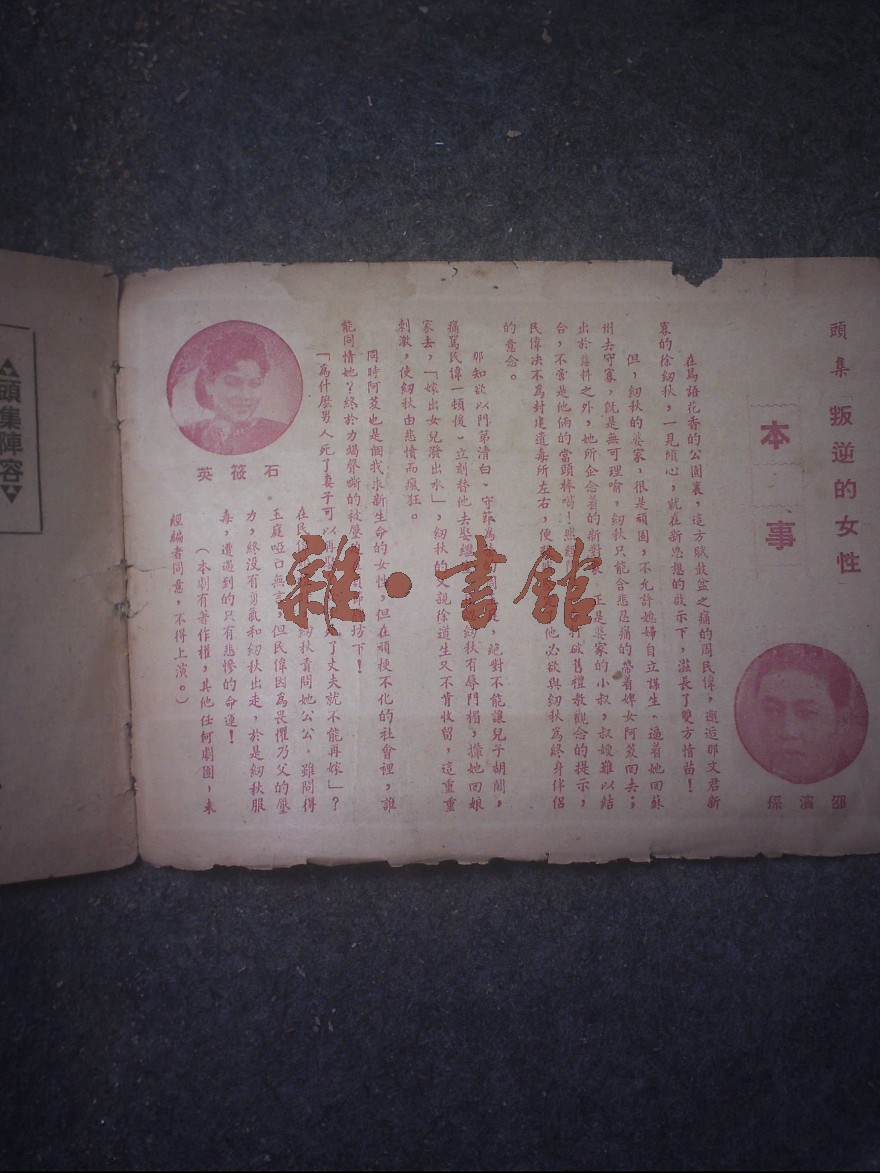 頭集 叛逆的女性
本事
邵濱孫
在鳥語花香的公園裏,這方賦鼓盆之痛的周民偉,邂逅那文君新
寡的徐紉秋,一見傾心,就在新思想的啟示下,滋長了雙方情苗!
但,紉秋的婆家,很是頑固,不允許媳婦自立謀生,逼着她回蘇
州去守寡,既是無可理喻,紉秋只能含悲忍痛的帶着婢女阿英回去;
出於意料之外,她所企念着的新對象,正是婆家的小叔,叔嫂難以結
合,不啻是他倆的當頭棒喝!
打破舊禮教觀念的提示,
民偉决不為封建遺毒所左右,便
他必欲與紉秋為終身伴侣
的意念。
那知欲以門第清白,守節為
絕對不能讓兒子胡鬧,
痛罵民偉一頓後,立刻替他去娶繼
紉秋有辱門楣,攆她回娘
家去,「嫁出女兒潑出水」,紉秋的父親徐道生又不肯收留,這重重
刺激,使紉秋由悲憤而瘋狂。
同時阿英也是個找求新生命的女性,但在頑梗不化的社會裡,誰
能同情她?終於力竭聲嘶的被壓
坊下!
「為什麼男人死了妻子可以再娶
了丈夫就不能再嫁」?
石筱英
在民偉
紉秋責問她公公,雖問得
玉庭啞口無言,但民偉因為畏懼乃父的壓
力,終没有勇氣和紉秋出走,於是紉秋服
毒,遭遇到的只有悲慘的命運!
(本劇有著作權,其他任何劇團,未
經編者同意,不得上演。)
頭集陣容
雜·書館